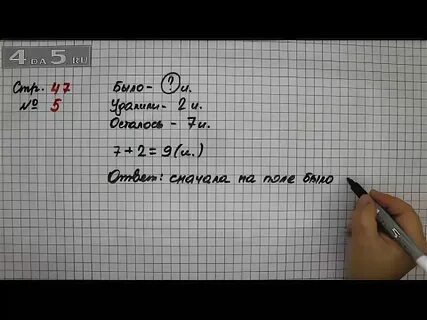 4 DA 5 RU
Стр. 47
№ 5
Было - ? и.
Удалили - 2 и.
Осталось - 7 и.
7 + 2 = 9 (и.)
Ответ: сначала на поле было